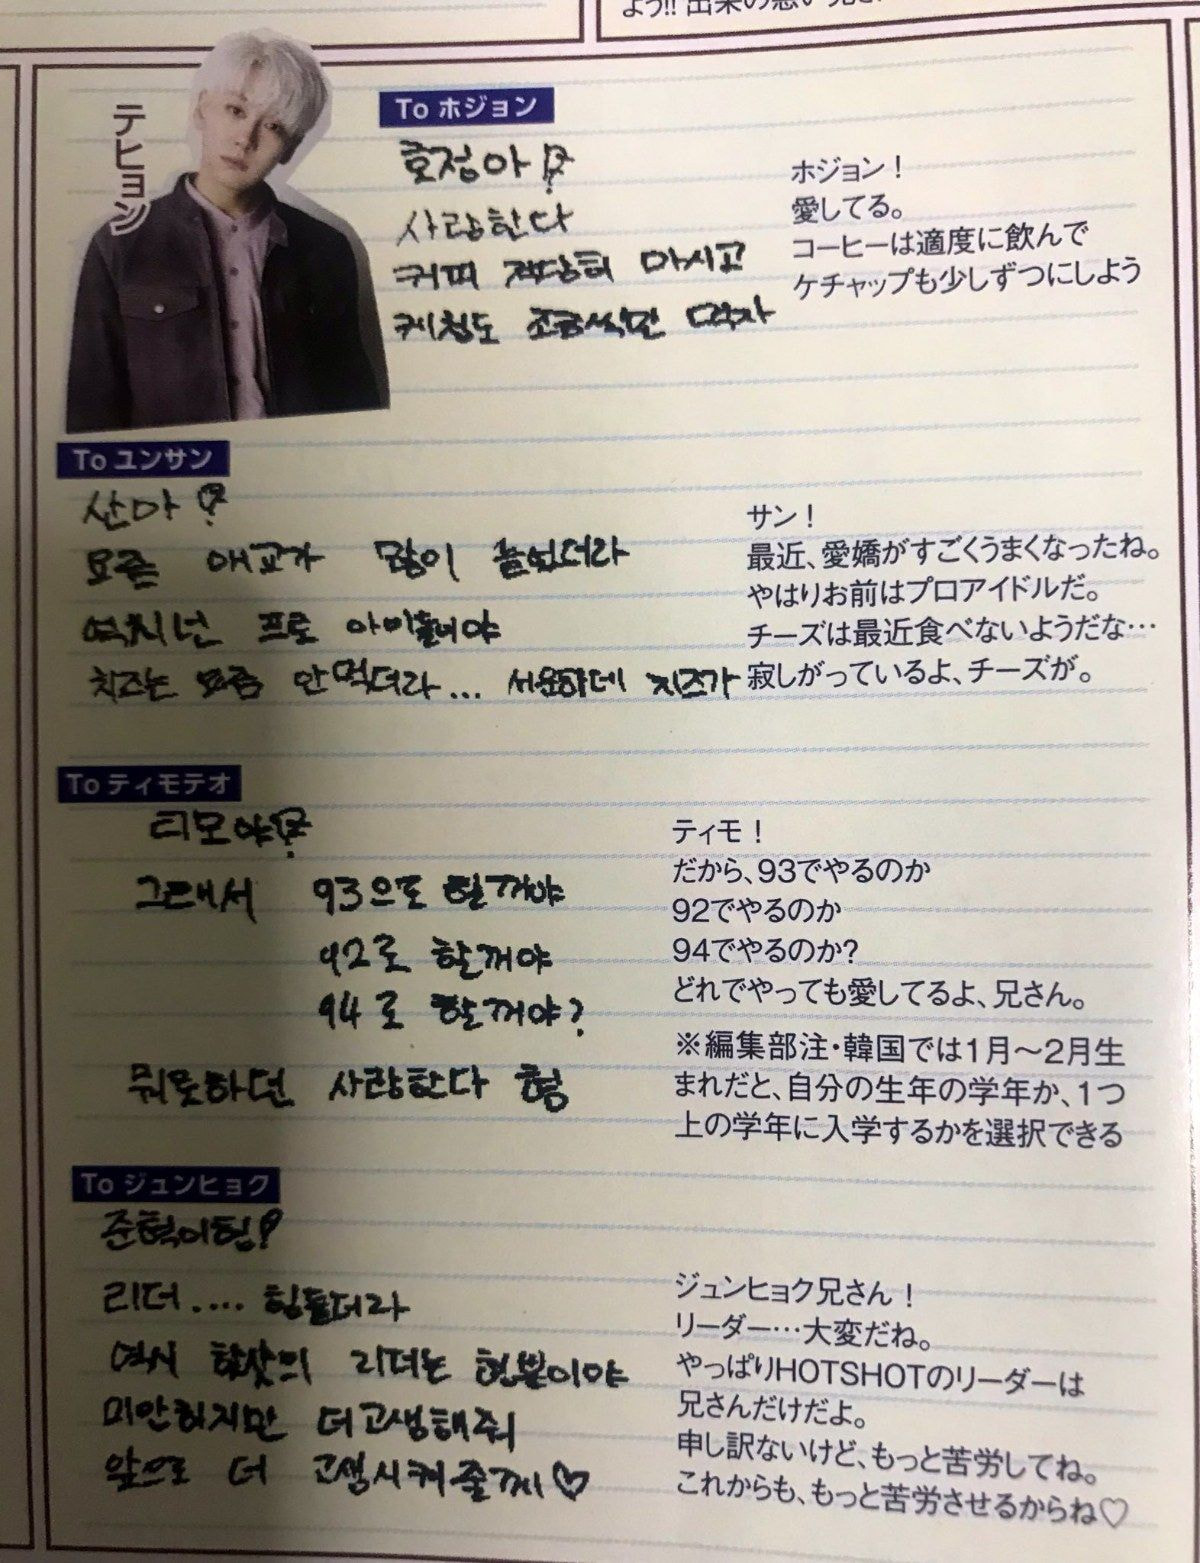 テヒョン
To ホジョン
호정아!
사랑한다
커피 적당히 마시고
케첩도 조금씩만 먹자
ホジョン！
愛してる。
コーヒーは適度に飲んで
ケチャップも少しずつにしよう
To ユンサン
산아!
요즘 애교가 많이 늘었더라
역시 넌 프로 아이돌이야
치즈는 요즘 안먹더라... 서운하데 치즈가
サン！
最近、愛嬌がすごくうまくなったね。
やはりお前はプロアイドルだ。
チーズは最近食べないようだな…
寂しがっているよ、チーズが。
To ティモテオ
티모야!
그래서 93으로 할꺼야
92로 할꺼야
94로 할꺼야?
뭐로하던 사랑한다 형
ティモ！
だから、93でやるのか
92でやるのか
94でやるのか?
どれでやっても愛してるよ、兄さん。
※編集部注・韓国では1月〜2月生
まれだと、自分の生年の学年か、1つ
上の学年に入学するかを選択できる
To ジュンヒョク
준혁이형!
리더.... 힘들더라
역시 핫샷의 리더는 형뿐이야
미안하지만 더고생해줘
앞으로 더 고생시켜줄께♡
ジュンヒョク兄さん！
リーダー…大変だね。
やっぱりHOTSHOTのリーダーは
兄さんだけだよ。
申し訳ないけど、もっと苦労してね。
これからも、もっと苦労させるからね♡